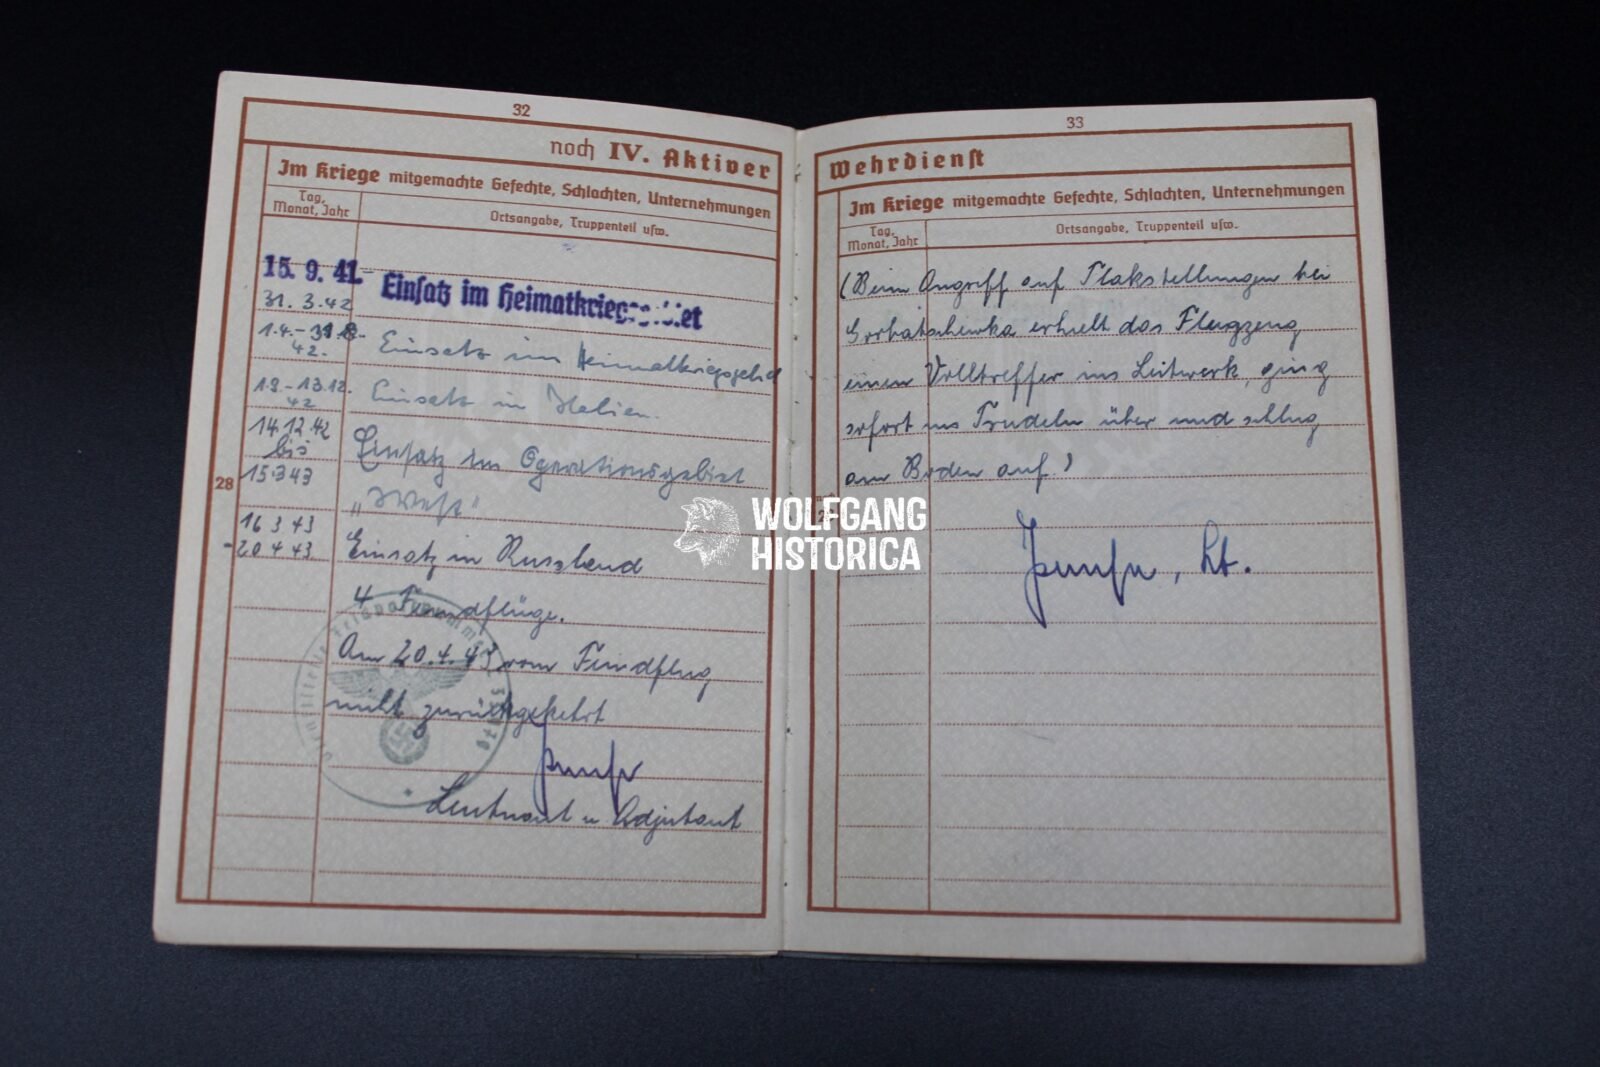 32
noch IV. Aktiver
Im Kriege mitgemachte Gefechte, Schlachten, Unternehmungen
Tag, Monat, Jahr
Ortsangabe, Truppenteil usw.
15. 9. 41- Einsatz im Heimatkriegs
31. 3. 42
1.4.-31.8.
42. Einsatz im Heimatkriegsgebiet
1.9.-13.12.
42 Einsatz in Italien.
14.12.42
bis Einsatz im Operationsgebiet
15.3.43
28
"West"
16.3.43
-20.4.43 Einsatz in Russland
4 Feindflüge.
Am 20.4.43 vom Feindflug
nicht zurückgekehrt
Leutnant u Adjutant
33
Wehrdienst
Im Kriege mitgemachte Gefechte, Schlachten, Unternehmungen
Tag, Monat, Jahr
Ortsangabe, Truppenteil usw.
(Beim Angriff auf Flakstellungen bei
Gorbatschewka erhielt das Flugzeug
einen Volltreffer ins Leitwerk, ging
sofort ins Trudeln über und schlug
am Boden auf.)
Lt.
WOLFGANG
HISTORICA